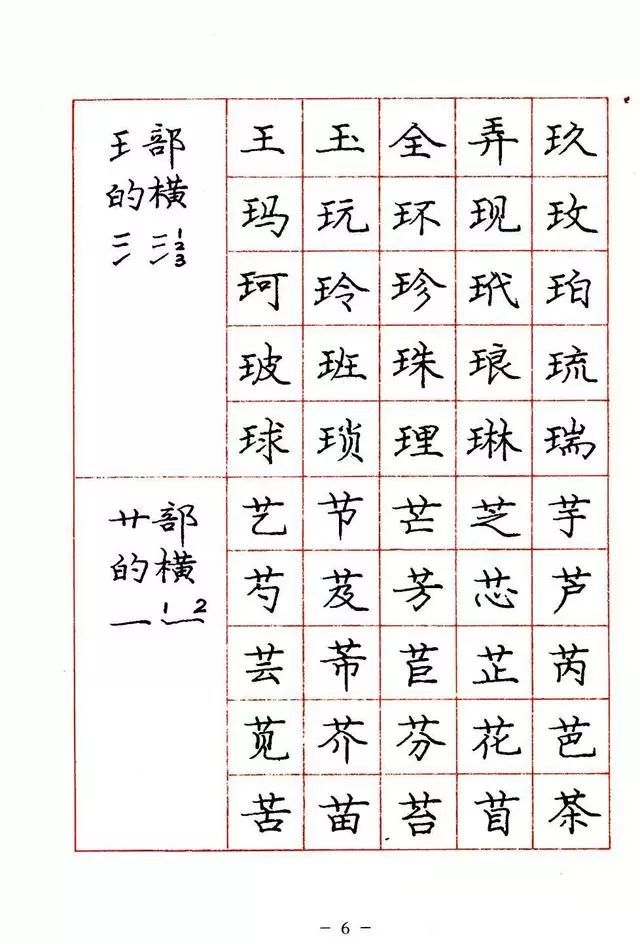 王部
的横
1
2
3
王 玉 全 弄 玖
玛 玩 环 现 玫
珂 玲 珍 玳 珀
玻 班 珠 琅 琉
球 琐 理 琳 瑞
艹部
的横
1 2
艺 节 芒 芝 芋
芍 芨 芳 芯 芦
芸 芾 苣 芷 芮
苋 芥 芬 花 芭
苦 苗 苔 苜 茶
- 6 -